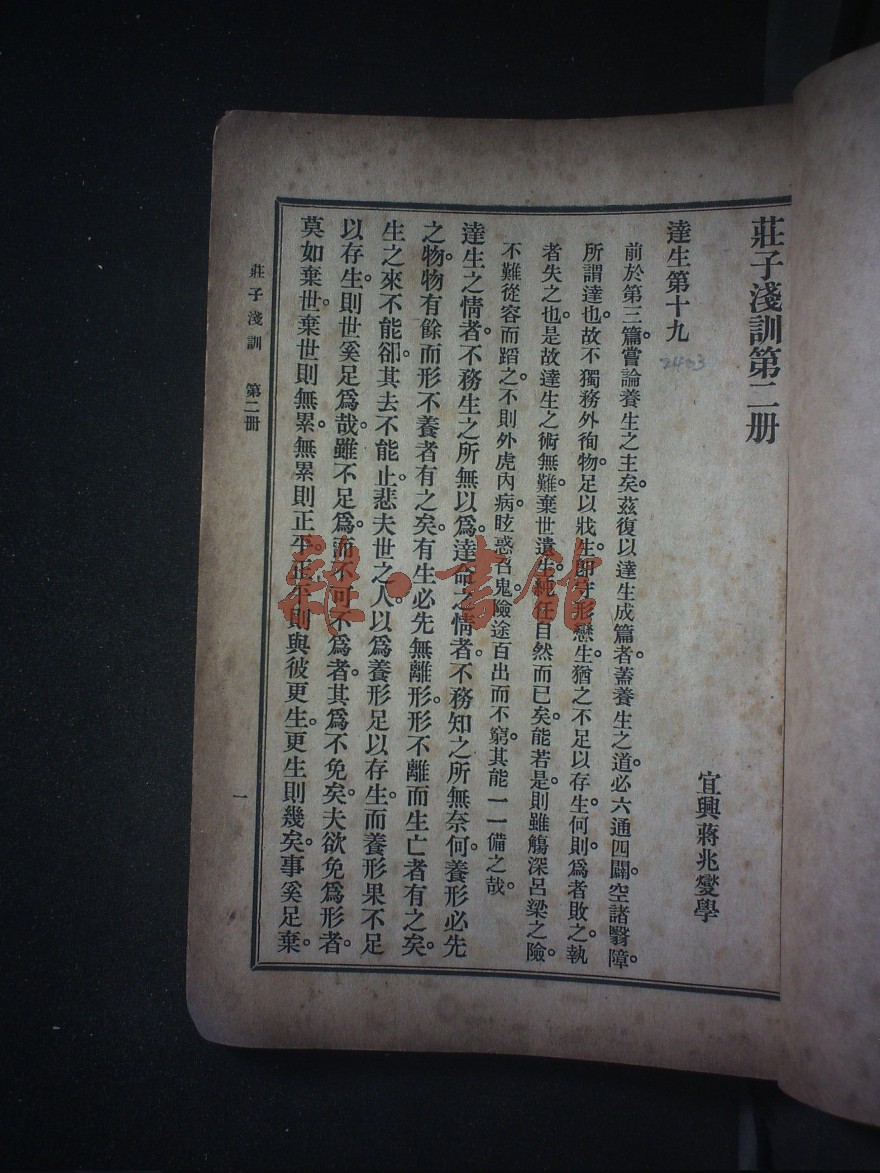 莊子淺訓第二册
宜興蔣兆燮學
達生第十九
2403
前於第三篇。嘗論養生之主矣。茲復以達生成篇者。蓋養生之道。必六通四闢。空諸翳障。
所謂達也。故不獨務外徇物。足以戕生。卽守形戀生。猶之不足以存生。何則。爲者敗之。執
者失之也。是故達生之術無難。棄世遺生。純任自然而已矣。能若是。則雖觴深呂梁之險。
不難從容而蹈之。不則外虎內病。眩惑召鬼。險途百出而不窮。其能一一備之哉。
達生之情者。不務生之所無以爲。達命之情者。不務知之所無奈何。養形必先
之物。物有餘而形不養者有之矣。有生必先無離形。形不離而生亡者有之矣。
生之來不能卻。其去不能止。悲夫世之人。以爲養形足以存生。而養形果不足
以存生。則世奚足爲哉。雖不足爲。而不可不爲者。其爲不免矣。夫欲免爲形者。
莫如棄世。棄世則無累。無累則正平。正平則與彼更生。更生則幾矣。事奚足棄。
莊子淺訓 第二册
一
雜·書館